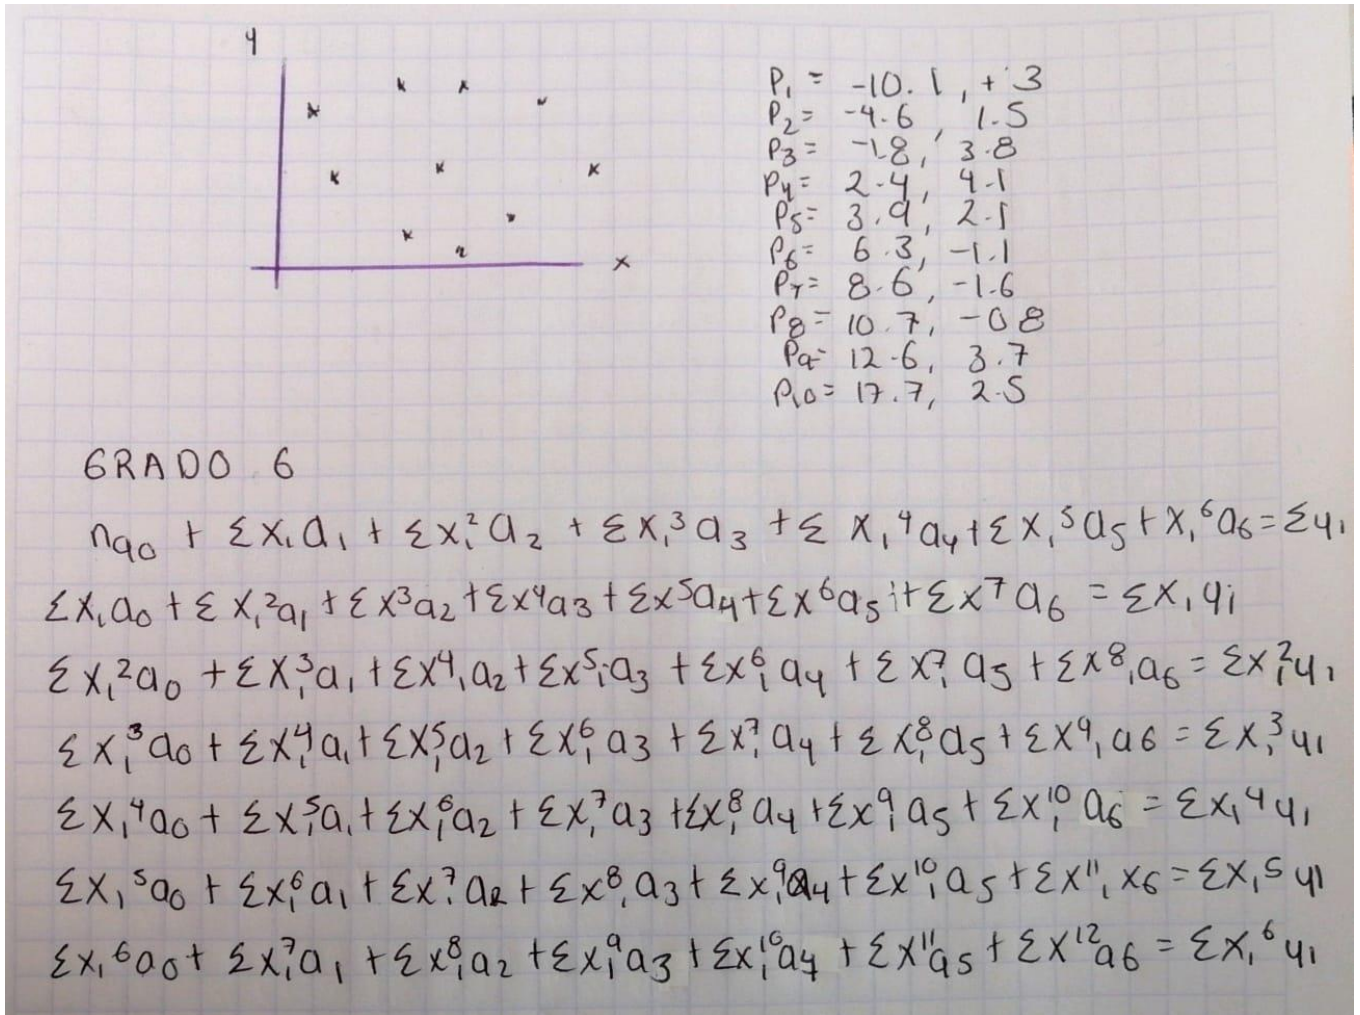 y
x
P₁ = -10.1, +3
P₂= -4.6, 1.5
P₃= -1.8, 3.8
P₄= 2.4, 4.1
P₅= 3.9, 2.1
P₆= 6.3, -1.1
P₇= 8.6, -1.6
P₈= 10.7, -0.8
P₉= 12.6, 3.7
P₁₀= 17.7, 2.5
GRADO 6
na₀ + Σxᵢa₁ + Σxᵢ²a₂ + Σxᵢ³a₃ + Σxᵢ⁴a₄ + Σxᵢ⁵a₅ + xᵢ⁶a₆ = Σyᵢ
Σxᵢa₀ + Σxᵢ²a₁ + Σx³a₂ + Σx⁴a₃ + Σx⁵a₄ + Σx⁶a₅ + Σx⁷a₆ = Σxᵢyᵢ
Σxᵢ²a₀ + Σxᵢ³a₁ + Σx⁴ᵢa₂ + Σx⁵ᵢa₃ + Σxᵢ⁶a₄ + Σxᵢ⁷a₅ + Σx⁸ᵢa₆ = Σxᵢ²yᵢ
Σxᵢ³a₀ + Σxᵢ⁴a₁ + Σxᵢ⁵a₂ + Σxᵢ⁶a₃ + Σxᵢ⁷a₄ + Σxᵢ⁸a₅ + Σx⁹ᵢa₆ = Σxᵢ³yᵢ
Σxᵢ⁴a₀ + Σxᵢ⁵a₁ + Σxᵢ⁶a₂ + Σxᵢ⁷a₃ + Σxᵢ⁸a₄ + Σxᵢ⁹a₅ + Σxᵢ¹⁰a₆ = Σxᵢ⁴yᵢ
Σxᵢ⁵a₀ + Σxᵢ⁶a₁ + Σxᵢ⁷a₂ + Σx⁸ᵢa₃ + Σxᵢ⁹a₄ + Σxᵢ¹⁰a₅ + Σx¹¹ᵢx₆ = Σxᵢ⁵yᵢ
Σxᵢ⁶a₀ + Σxᵢ⁷a₁ + Σxᵢ⁸a₂ + Σxᵢ⁹a₃ + Σxᵢ¹⁰a₄ + Σxᵢ¹¹a₅ + Σx¹²a₆ = Σxᵢ⁶yᵢ